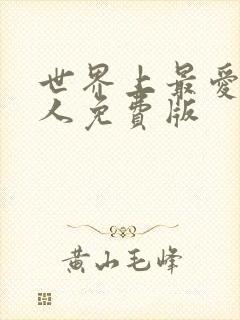 世界上最爱
人免费版
黄山毛峰